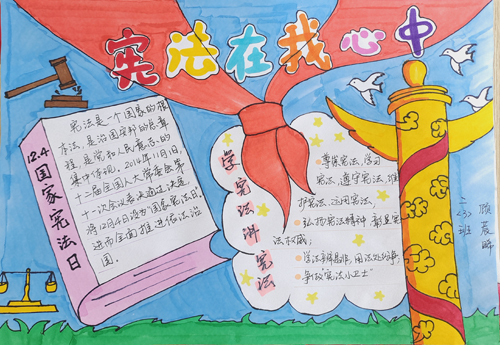 宪法在我心中
12.4国家宪法日
宪法是一个国家的根
本法，是治国安邦的总章
程，是党和人民意志的
集中体现。2014年11月1日,
十二届全国人大常委会第
十一次会议表决通过决定,
将12月4日设为国家宪法日,
进而全面推进依法治
国。
学宪法讲宪法
尊崇宪法、学习
宪法、遵守宪法、维
护宪法、运用宪法。
弘扬宪法精神
法权威;
学法
争做"宪法小卫士"
二(3)班